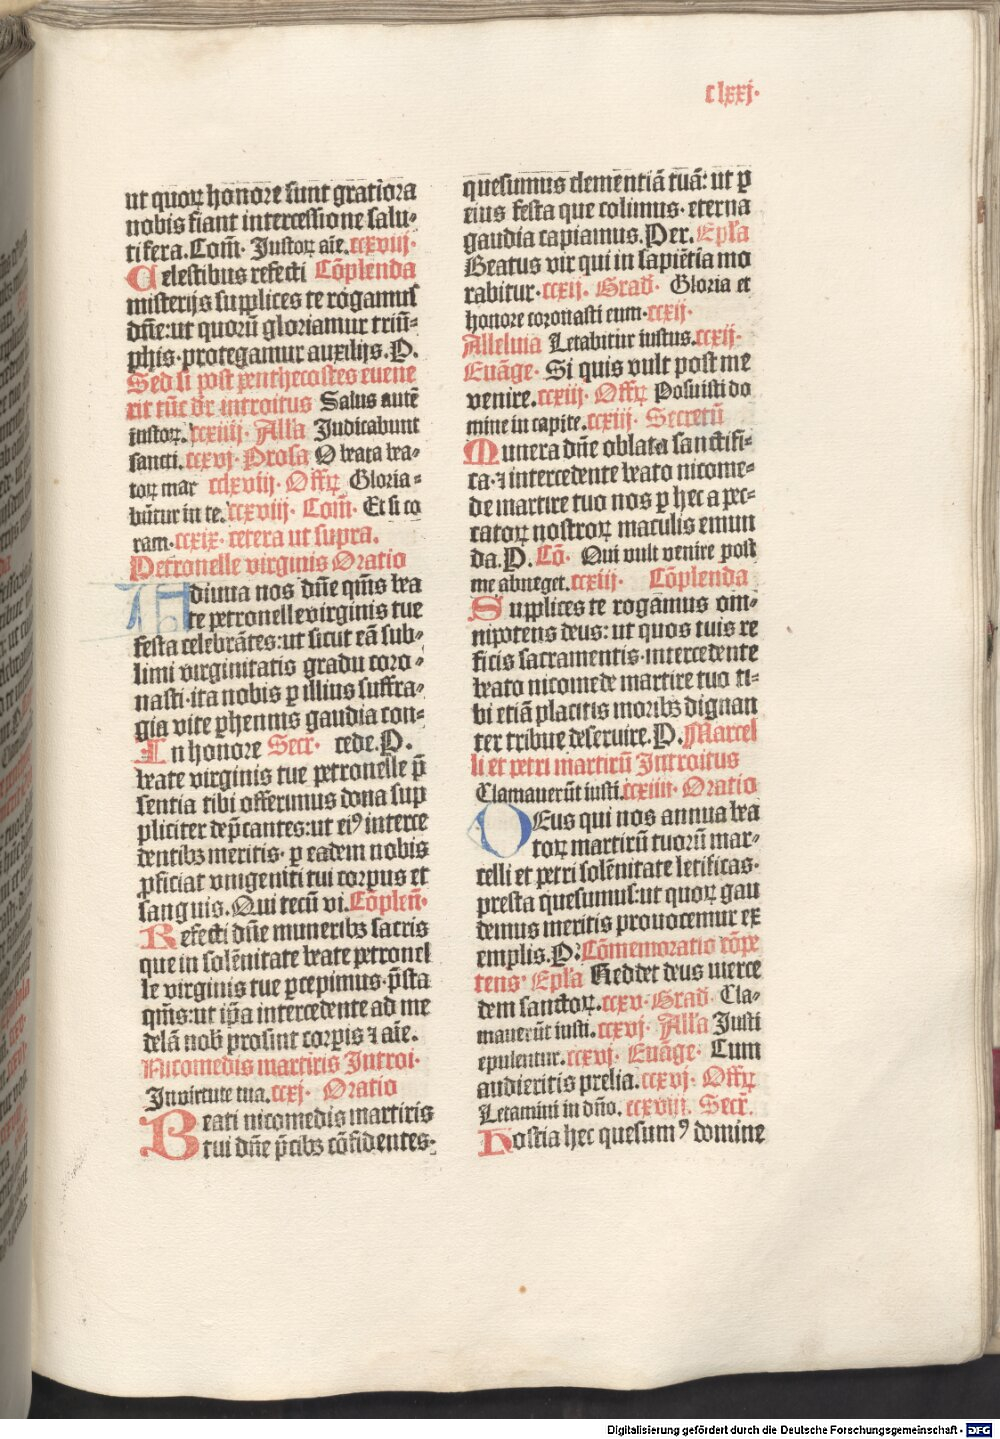 clxxj·
ut quoꝝ honore sunt gratiora
nobis fiant intercessione salu-
tifera. Com̄· Justoꝝ aīe. ccxviij·
Celestibus refecti Cōplenda
misterijs supplices te rogamus
dn̄e: ut quorū gloriamur triū-
phis· protegamur auxilijs. P.
Sed si post penthecostes euene
rit tūc dr̄ introitus Salus autē
iustoꝝ. ccxiiij· Alľa Judicabunt
sancti. ccxvj· Prosa O beata bea-
toꝝ mar cclxviij· Offꝝ Gloria-
būtur in te. ccxviij· Com̄· Et si co
ram· ccxix· cetera ut supra.
Petronelle virginis Oratio
Adiuua nos dn̄e qm̄s bea
te petronelle virginis tue
festa celebrātes: ut sicut eā sub-
limi virginitatis gradu coro-
nasti· ita nobis ꝑ illius suffra-
gia vite ꝑhennis gaudia con-
In honore Secr· cede. P.
beate virginis tue petronelle p̄
sentia tibi offerimus dona sup
pliciter dep̄cantes: ut eiꝰ interce
dentibꝫ meritis· ꝑ eadem nobis
ꝓficiat vnigeniti tui corpus et
sanguis. Qui tecū vi. Cōplen̄·
Refecti dn̄e muneribꝫ sacris
que in solēnitate beate petronel
le virginis tue ꝑcepimus· p̄sta
qm̄s: ut ip̄a intercedente ad me
delā nob̄ prosint corpis ⁊ aīe.
Nicomedis martiris Introi·
In virtute tua. ccxj· Oratio
Beati nicomedis martiris
tui dn̄e p̄cibꝫ cōfidentes:
quesumus clementiā tuā: ut ꝑ
eius festa que colimus· eterna
gaudia capiamus. Per. Epľa
Beatus vir qui in sapiētia mo
rabitur· ccxij· Grad̄· Gloria et
honore coronasti eum· ccxij·
Alleluia Letabitur iustus. ccxij·
Euāge· Si quis vult post me
venire. ccxiij· Offꝝ Posuisti do
mine in capite. ccxiij· Secretū
Munera dn̄e oblata sanctifi-
ca· ⁊ intercedente beato nicome-
de martire tuo nos ꝑ hec a pec-
catoꝝ nostroꝝ maculis emun
da. P. Cō· Qui vult venire post
me abneget. ccxiij· Cōplenda
Supplices te rogamus om-
nipotens deus: ut quos tuis re
ficis sacramentis· intercedente
beato nicomede martire tuo ti-
bi etiā placitis moribꝫ dignan
ter tribue deseruire. P. Marcel
li et petri martirū Introitus
Clamauerūt iusti. ccxiiij· Oratio
DEus qui nos annua bea
toꝝ martirū tuorū mar-
celli et petri solēnitate letificas·
presta quesumus: ut quoꝝ gau
demus meritis prouocemur ex
emplis. P. Cōmemoratio cōpe
tens· Epľa Reddet deus merce
dem sanctoꝝ. ccxv· Grad̄· Cla-
mauerūt iusti. ccxvj· Alľa Justi
epulentur. ccxvj· Euāge· Cum
audieritis prelia. ccxvj· Offꝝ
Letamini in dn̄o. ccxviij. Secr̄.
Hostia hec quesumꝰ domine
Digitalisierung gefördert durch die Deutsche Forschungsgemeinschaft - DFG